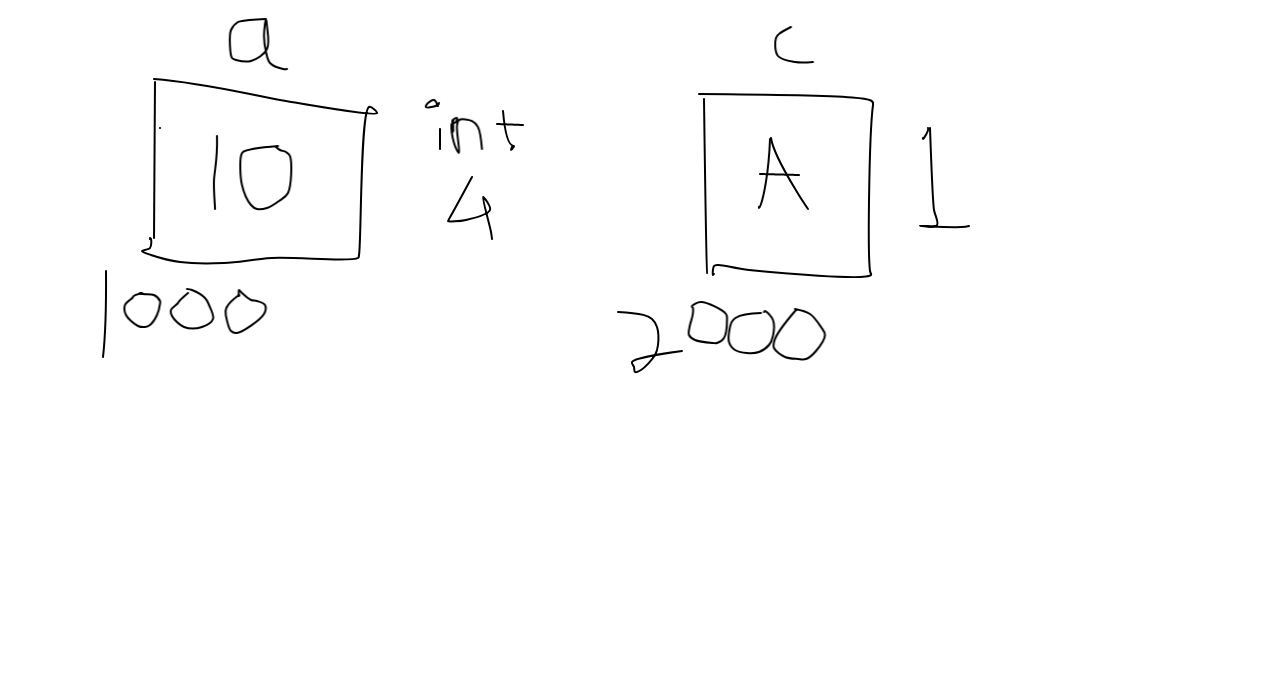 a
10
int
4
1000
c
A
1
2000